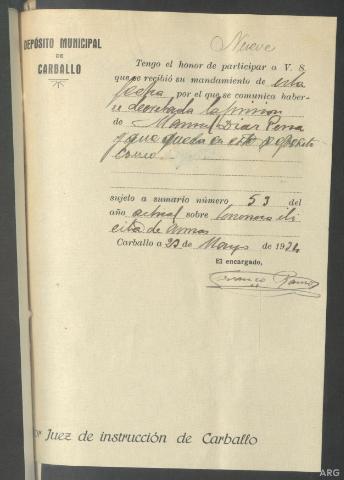 DEPÓSITO MUNICIPAL
DE
CARBALLO
Nueve
Tengo el honor de participar a V. S.
que se recibió su mandamiento de esta
fecha por el que se comunica haber-
se decretado la prision
de Manuel Diaz Pena
y que queda en este deposito
como
sujeto a sumario número 53 del
año actual sobre tenencia ili
cita de armas
Carballo a 23 de Mayo de 192
El encargado,
or Juez de instrucción de Carballo
ARG